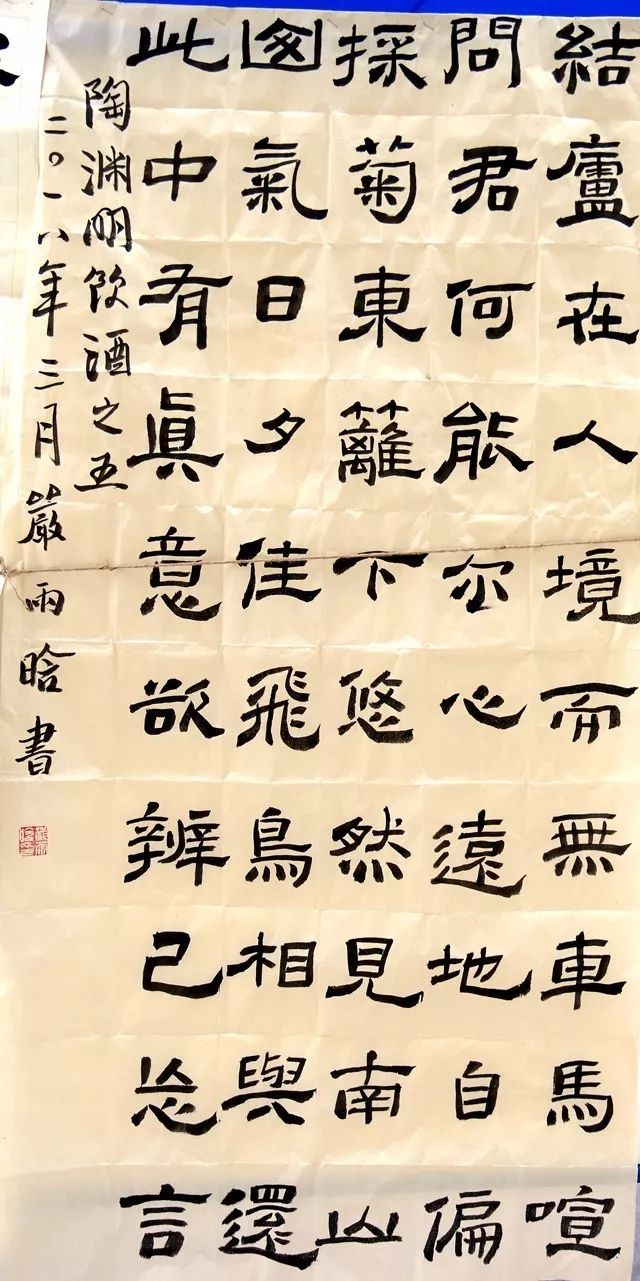 結廬在人境而無車馬喧
問君何能尔心遠地自偏
採菊東籬下悠然見南山
氣日夕佳飛鳥相與還
此中有眞意欲辨己忘言
陶渊明饮酒之五
二〇一八年三月嚴雨晗書